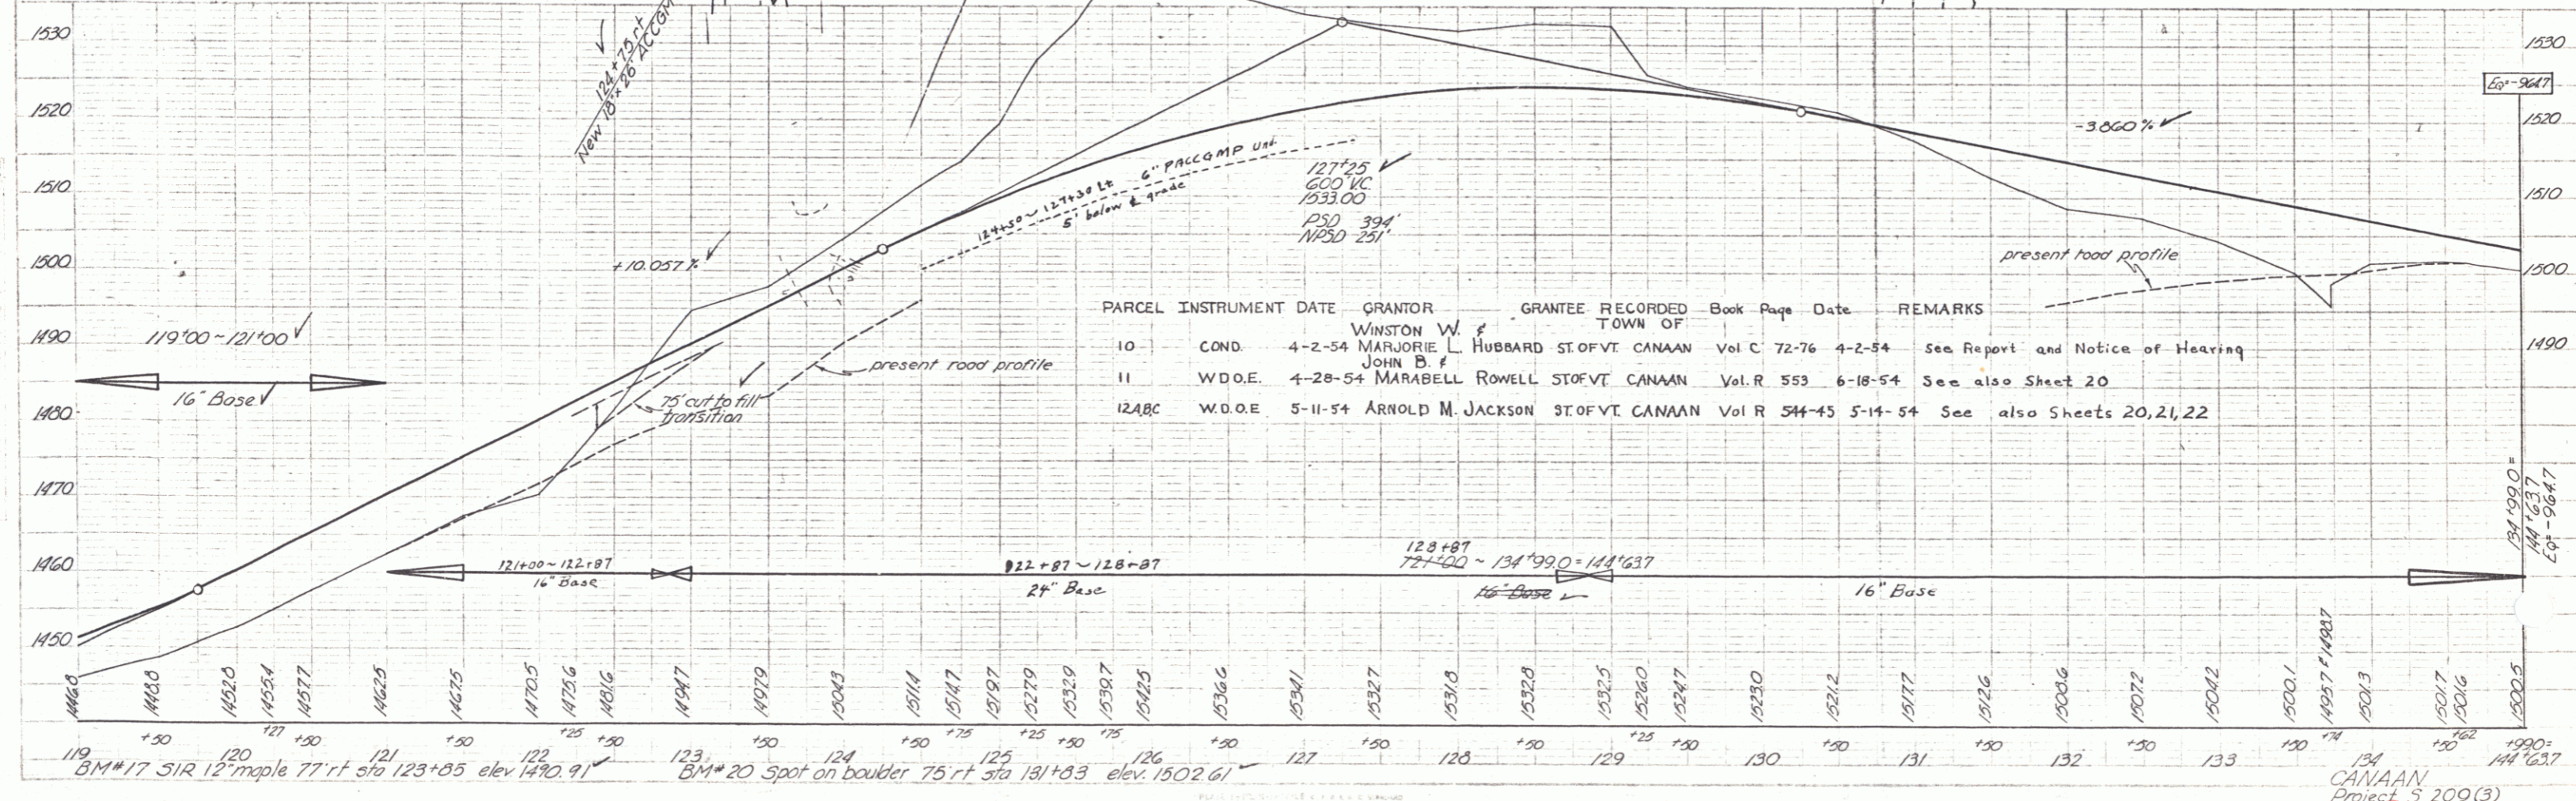 1530
1520
1510
1500
1490
1480
1470
1460
1450
124+75 rt
New 18"x26' ACCGM
119+00 ~ 121+00
16" Base
+10.057%
75' cut to fill
transition
present road profile
124+50 ~ 127+30 Lt 6" PACCGMP Und.
5' below ℄ grade
127+25
600' V.C.
1533.00
PSD 394'
NPSD 251'
-3.860%
present road profile
Eq=-964.7
1530
1520
1510
1500
1490
PARCEL INSTRUMENT DATE GRANTOR GRANTEE RECORDED Book Page Date REMARKS
TOWN OF
WINSTON W. &
10 COND. 4-2-54 MARJORIE L. HUBBARD ST. OF VT. CANAAN Vol C 72-76 4-2-54 See Report and Notice of Hearing
JOHN B. &
11 W.D.O.E. 4-28-54 MARABELL ROWELL ST OF VT. CANAAN Vol. R 553 6-18-54 See also Sheet 20
12ABC W.D.O.E 5-11-54 ARNOLD M. JACKSON ST. OF VT. CANAAN Vol R 544-45 5-14-54 See also Sheets 20, 21, 22
134+99.0=
144+63.7
Eq=-964.7
121+00 ~ 122+87
16" Base
122+87 ~ 128+87
24" Base
128+87
121+00 ~ 134+99.0=144+63.7
16" Base
16" Base
1446.8 1448.8 1452.8 1455.4 1457.7 1462.5 1467.5 1470.5 1475.6 1481.6 1494.7 1497.9 1504.3 1511.4 1514.7 1519.7 1527.9 1532.9 1539.7 1542.5 1536.6 1534.1 1532.7 1531.8 1532.8 1532.5 1526.0 1524.7 1523.0 1521.2 1517.7 1512.6 1508.6 1507.2 1504.2 1500.1 1495.7 & 1498.7 1501.3 1501.7 1501.6 1500.5
119 +50 120 +27 +50 121 +50 122 +25 +50 123 +50 124 +50 +75 125 +25 +50 +75 126 +50 127 +50 128 +50 129 +25 +50 130 +50 131 +50 132 +50 133 +50 +74 134 +50 +62 +99.0=
144+63.7
BM#17 SIR 12" maple 77' rt sta 123+85 elev. 1490.91
BM#20 Spot on boulder 75' rt sta 131+83 elev. 1502.61
CANAAN
Project S 209(3)